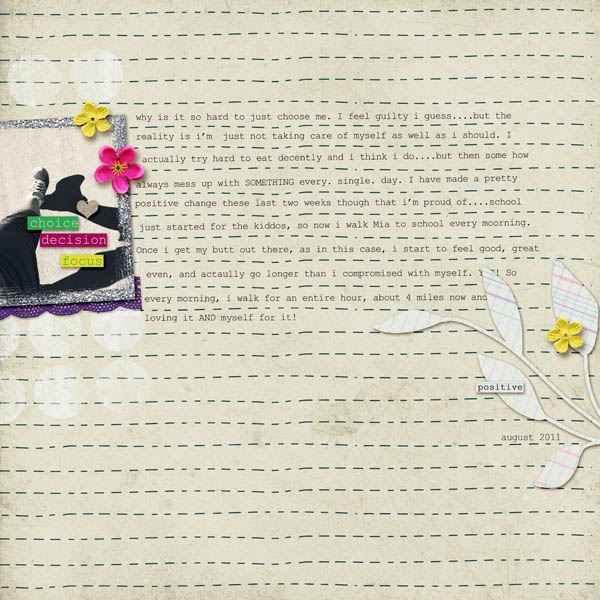 why is it so hard to just choose me. I feel guilty i guess....but the
reality is i'm just not taking care of myself as well as i should. I
actually try hard to eat decently and i think i do....but then some how
always mess up with SOMETHING every. single. day. I have made a pretty
positive change these last two weeks though that i'm proud of....school
just started for the kiddos, so now i walk Mia to school every moorning.
Once i get my butt out there, as in this case, i start to feel good, great
even, and actaully go longer than i compromised with myself. So
every morning, i walk for an entire hour, about 4 miles now and
loving it AND myself for it!
choice
decision
focus
positive
august 2011